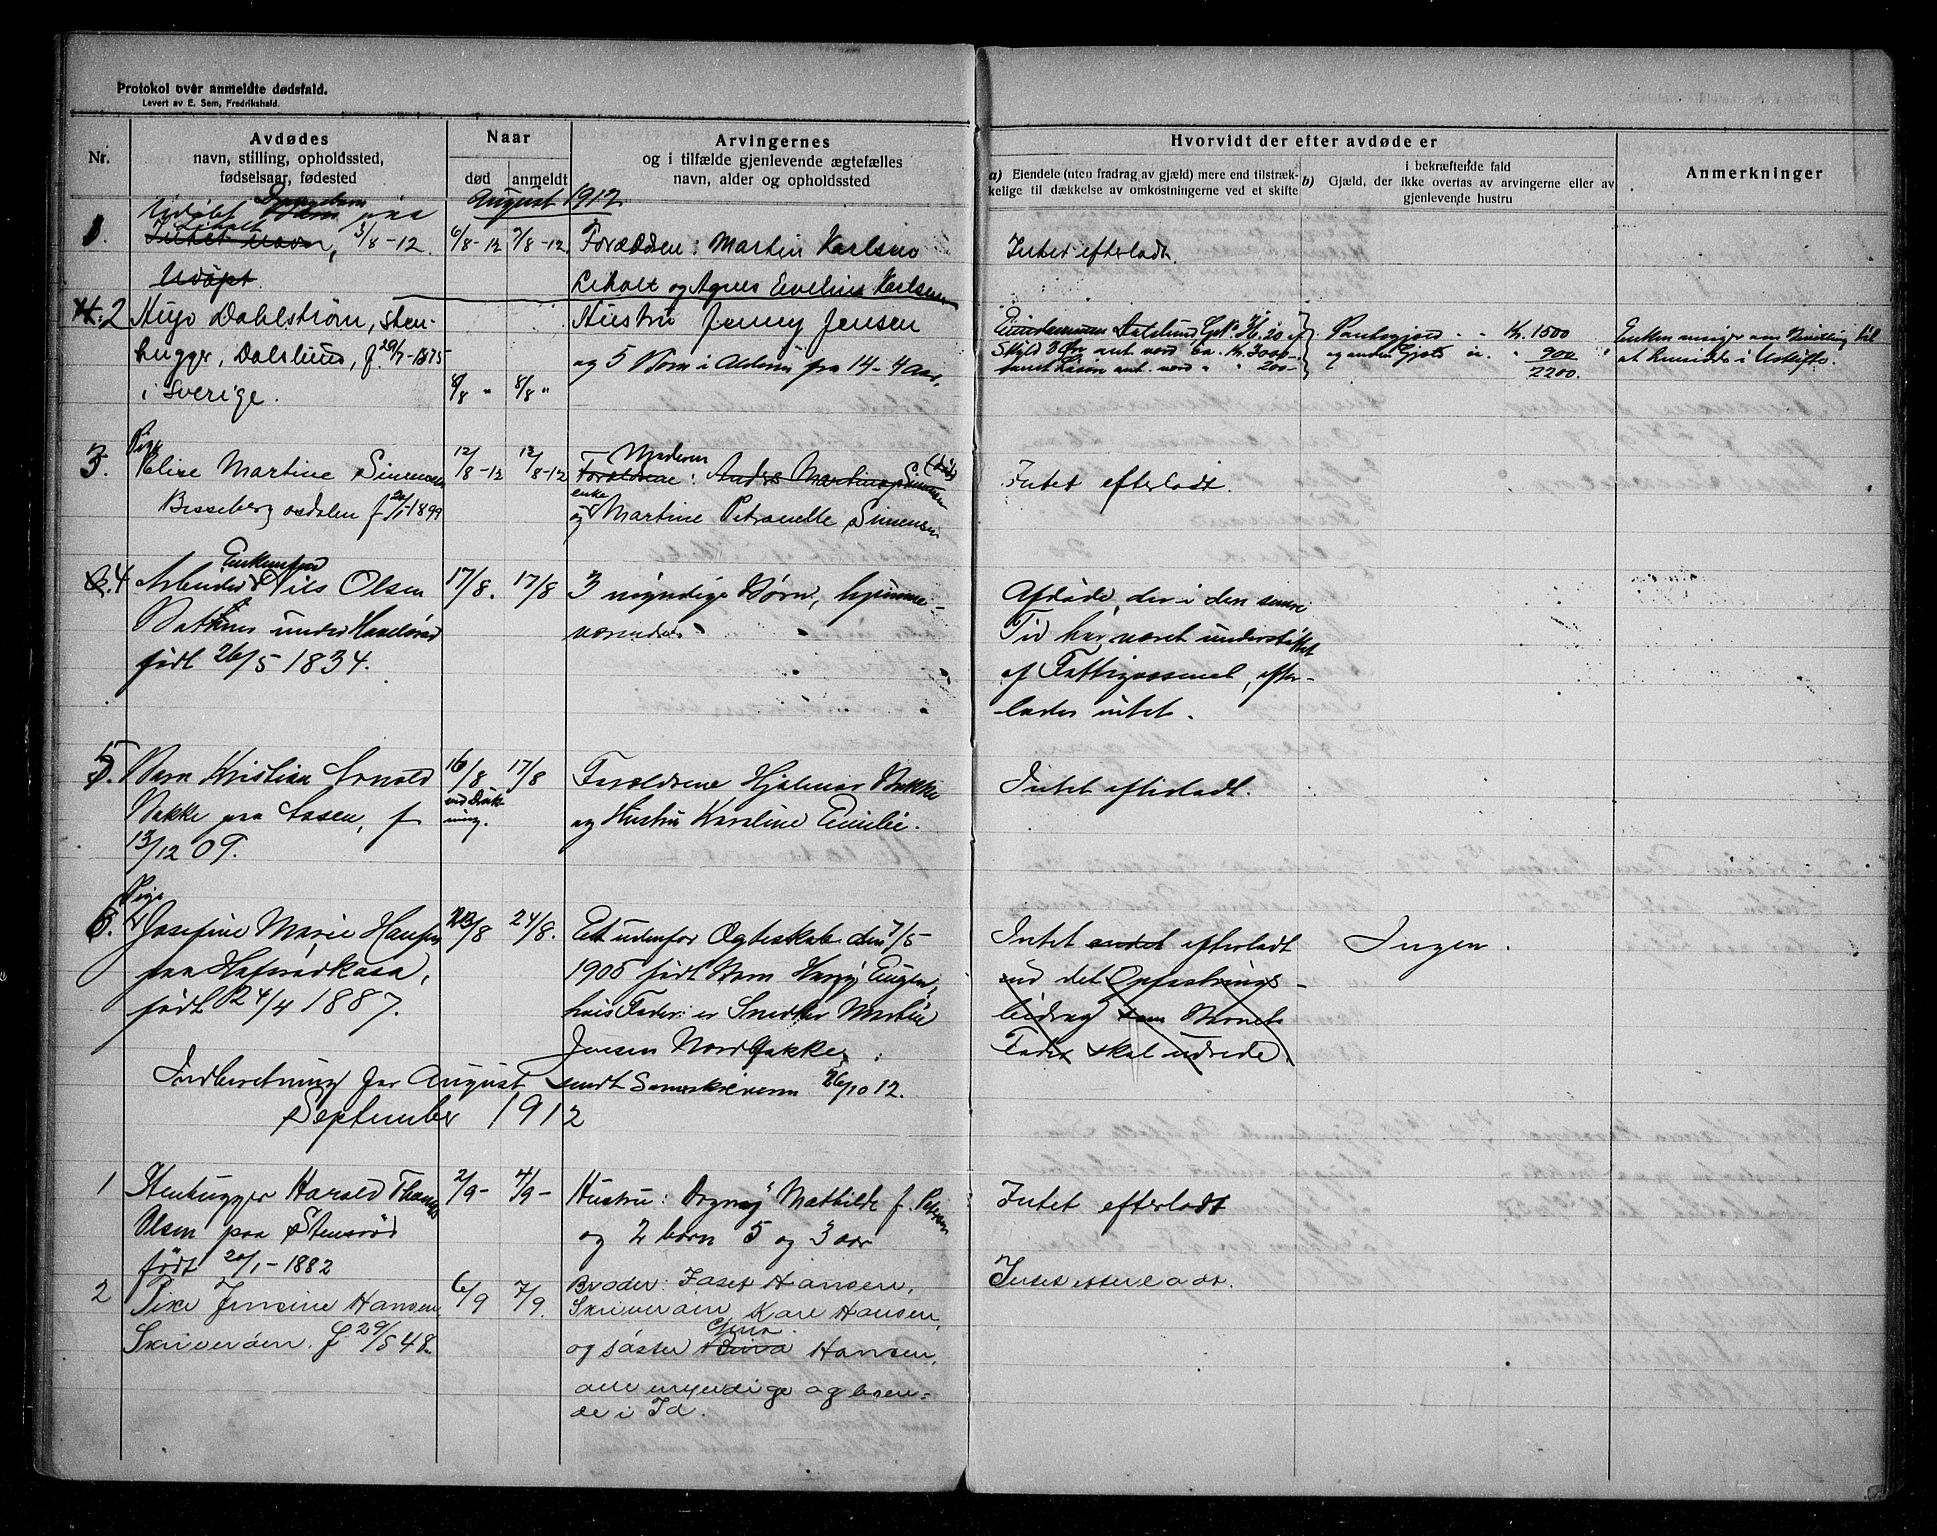 Protokol over anmeldte dødsfald.
Levert av E. Sem, Fredrikshald.
Nr.
Avdødes
navn, stilling, opholdssted,
fødselsaar, fødested
Naar
død
anmeldt
Arvingernes
og i tilfælde gjenlevende ægtefælles
navn, alder og opholdssted
Hvorvidt der efter avdøde er
a) Eiendele (uten fradrag av gjæld) mere end tilstræk-
kelige til dækkelse av omkostningerne ved et skifte
b) Gjæld, der
i bekræftende fald
ikke overtas av arvingerne eller av
gjenlevende hustru
Anmerkninger
August 1912
1.
Udøbt
Liholt
Intet Navn, 3/8-12.
Udøpt
6/8-12
7/8-12
Forældrene: Martin Karlsen
Liholt og Agnes Eveline Karlsen
Intet efterladt.
2
Hugo Dahlstrøm, Sten-
hugger, Dalslund, f. 29/7-1875
i Sverige.
8/8 "
8/8 "
Hustru Jenny Jensen
og 5 Børn i Alderen fra 14-4 Aar.
Skyld 3 Øre ant. værd ca. Kr. 3000-
samt Løsøre ant. værd " " 200-
Kr. 1500
" 900
2200.
3.
Pige
Elise Martine Simensen
Bisseberg f 20/1-1899
12/8-12
12/8-12
Moderen
Forældrene: Anders Martinus Simensen (død)
enke
og Martine Petronelle Simensen
Intet efterladt.
4
Enkemand
Arbeider Nils Olsen
under
født 26/5 1834.
17/8.
17/8
3 myndige Børn, hjemme-
værende
Afdøde, der i den senere
Tid har været understøttet
af Fattigvæsenet, efter-
lader intet.
5.
Barn Kristian Arnold
Bakke paa Aasen, f
13/12 09.
16/8
ved Druk-
ning.
17/8
Forældrene Hjalmar Bakke
og Hustru Karoline Emilie.
Intet efterladt.
6.
Pige
Josefine Marie Hansen
paa Hafsrødkasa,
født 24/4 1887.
23/8
24/8.
Et udenfor Ægteskab den 7/5
1905 født Barn Harry Eugen,
hvis Fader er Snedker Martin
Jensen Nord Bakke.
Intet andet efterladt
end det Opfostrings-
bidrag som Barnets
Fader skal udrede.
Ingen.
Indberetning for August sendt Sorenskriveren 26/10 12.
September 1912
1
Stenhugger Harald Thomas
Olsen paa Stensrød
født 20/1-1882
2/9-
4/9-
Hustru: Dagny Mathilde f. Petersen
og 2 børn 5 og 3 aar
Intet efterladt
2
Pike Jensine Hansen
Skriverøen. f. 29/5 48.
6/9
7/9.
Broder: Josef Hansen,
Skriverøen Karl Hansen,
og søster Gina Hansen,
alle myndige og boen-
de i Id.
Intet efterladt.